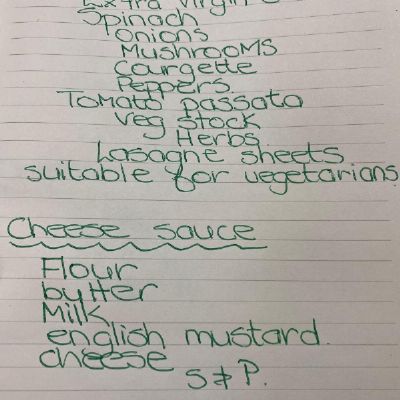 Extra virgin
Spinach
onions
Mushrooms
Courgette
Peppers
Tomato passata
Veg stock
Herbs
Lasagne sheets
suitable for vegetarians
Cheese sauce
Flour
butter
Milk
english mustard.
cheese
S & P.